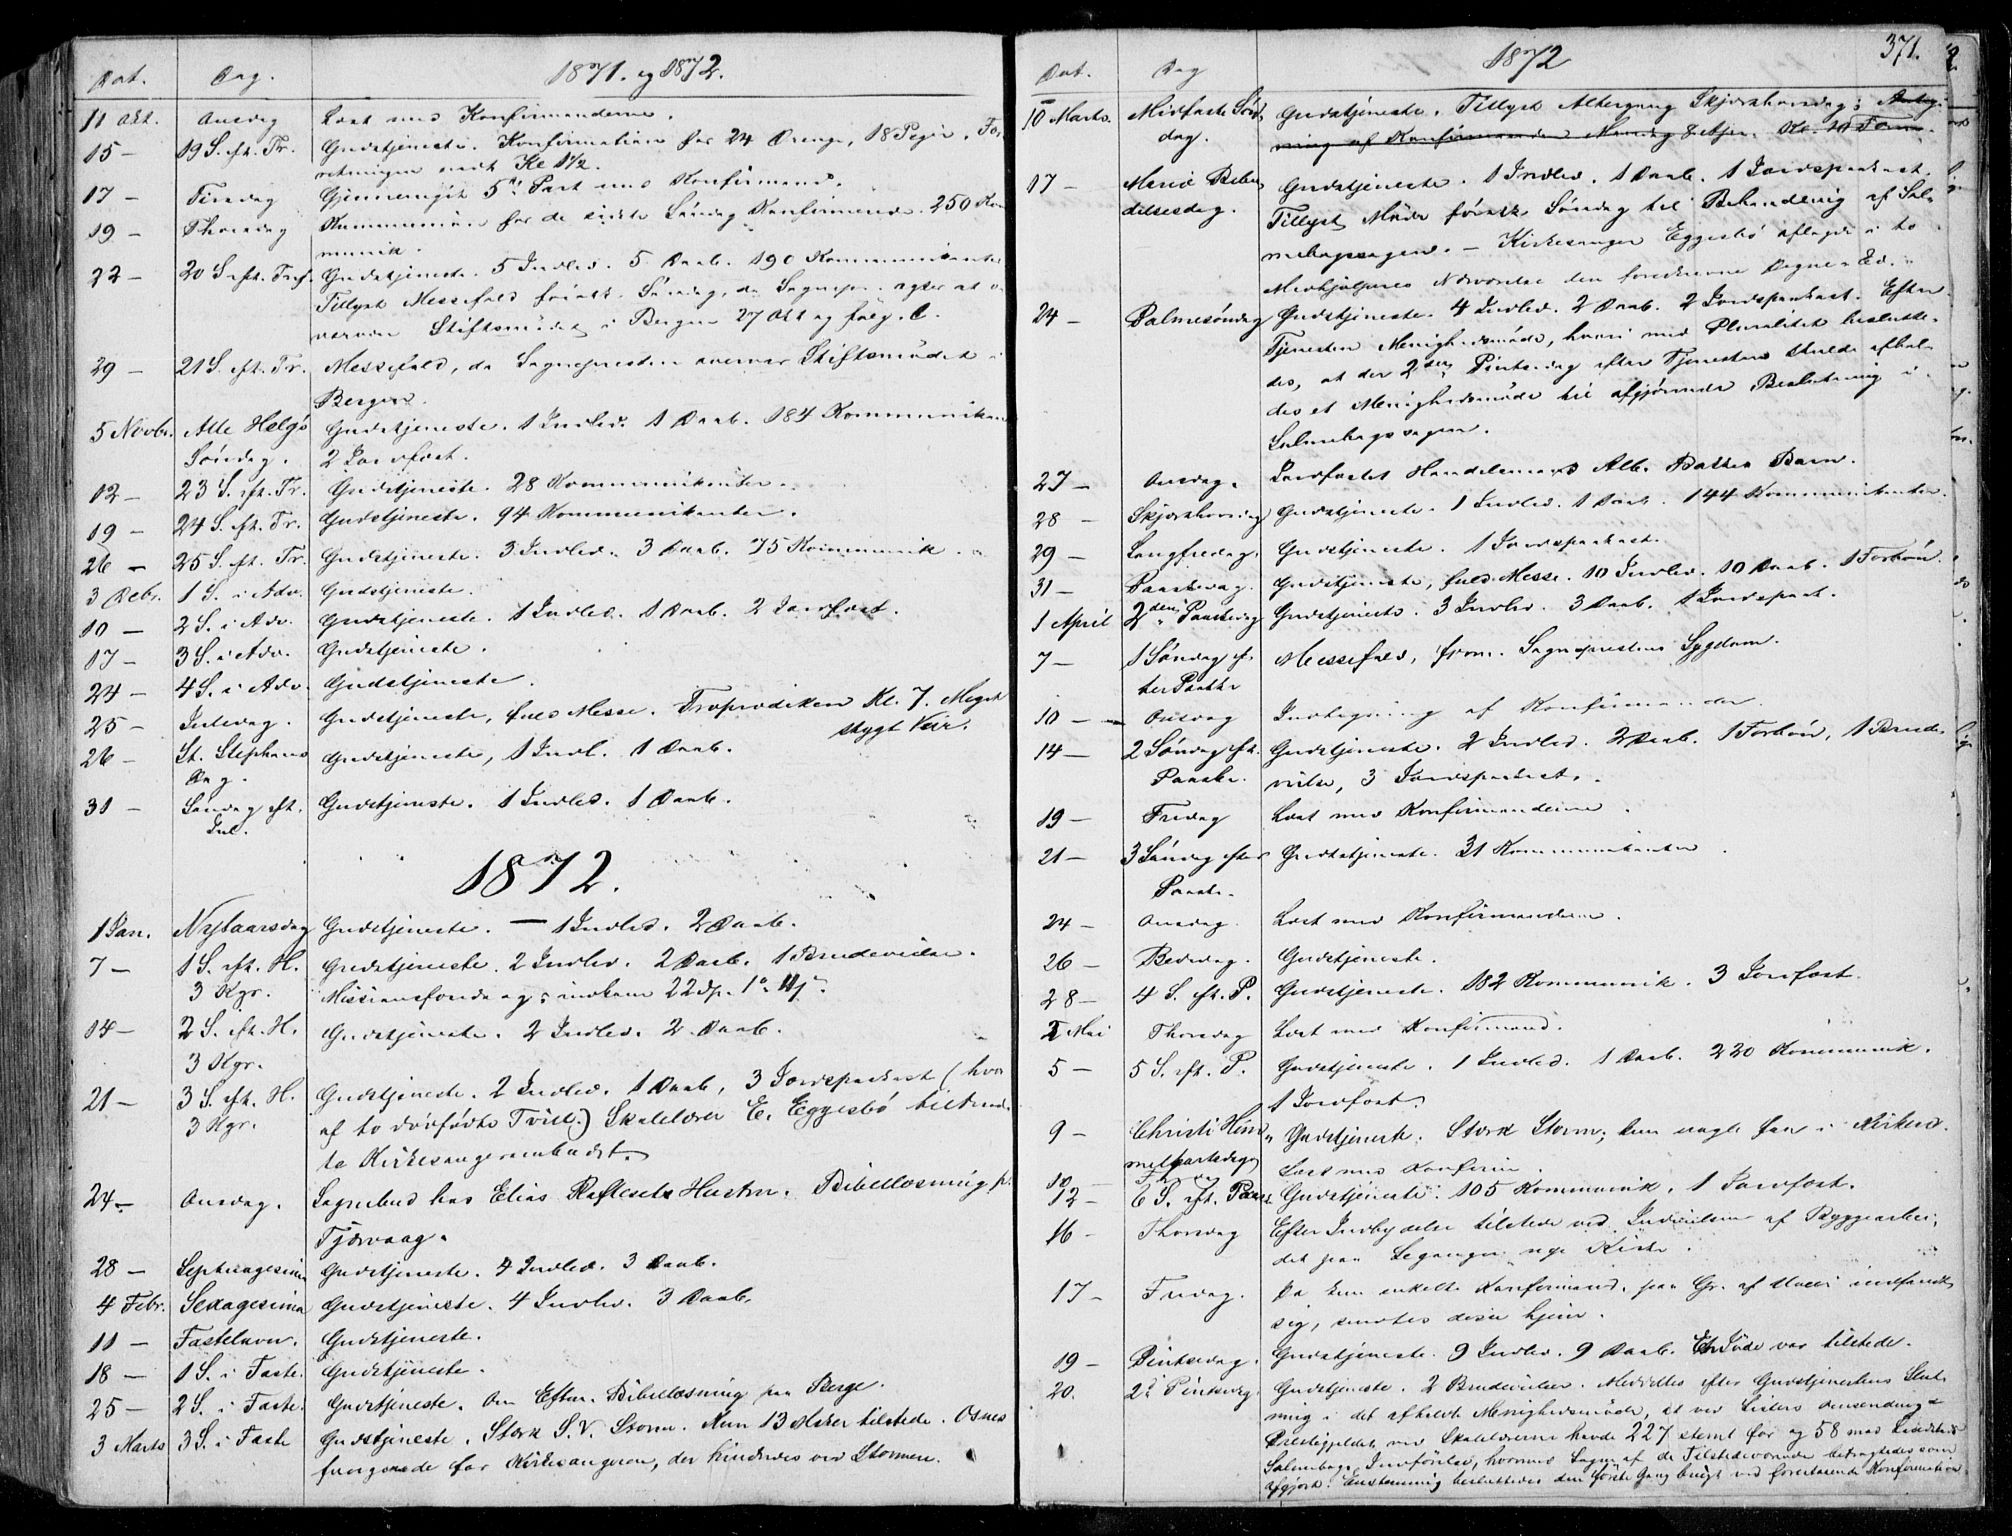 Dat. Dag. 1871. og 1872.
11 Okt. Onsdag Læst med Konfirmanderne.
15 — 19 S. eft. Tr. Gudstjeneste. Konfirmation for 24 Drenge, 18 Piger. For-
retningen endt Kl 1½.
17 — Tirsdag Gjennemgik 5te Part med Konfirmand.
19 — Thorsdag Kommunion for de sidste Søndag Konfirmerede. 250 Kom
munik.
22 — 20 S. eft. Tref. Gudstjeneste. 5 Indled. 5 Daab. 190 Kommunikanter
Tillyst Messefald førstk. Søndag, da Sognepr. agter at o-
vervære Stiftsmødet i Bergen 27 Okt og følg. D.
29 — 21 S. eft. Tr. Messefald, da Sognepresten overvar Stiftsmødet i
Bergen.
5 Novbr. Alle Helgs Søndag. Gudstjeneste. 1 Indled. 1 Daab. 184 Kommunikan
2 Jordfæst.
12 — 23 S. eft. Tr. Gudstjeneste. 28 Kommunikanter.
19 — 24 S. eft. Tr. Gudstjeneste. 94 Kommunikanter.
26 — 25 S. eft. Tr. Gudstjeneste. 3 Indled. 3 Daab. 75 Kommunik.
3 Debr. 1 S. i Adv. Gudstjeneste.
10 — 2 S. i Adv. Gudstjeneste. 1 Indled. 1 Daab. 2 Jordfæst.
17 — 3 S. i Adv. Gudstjeneste.
24 — 4 S. i Adv. Gudstjeneste.
25 — Juledag. Gudstjeneste, fuld Messe. Froprædiken Kl. 7. Meget
stygt Veir.
26 — St. Stephans Dag. Gudstjeneste, 1 Indl. 1 Daab.
31 — Søndag eft. Jul. Gudstjeneste. 1 Indled. 1 Daab.
1872.
1 Jan. Nytaarsdag Gudstjeneste. — 1 Indled. 2 Daab.
7 — 1 S. eft. H. 3 Kgr. Gudstjeneste. 2 Indled. 2 Daab. 1 Brudevielse.
14 — 2 S. eft. H. 3 Kgr. Gudstjeneste. 2 Indled. 2 Daab.
21 — 3 S. eft. H. 3 Kgr. Gudstjeneste. 2 Indled. 1 Daab, 3 Jordspaakast (hvor
af to dødfødte Tvill.) Skolelærer E. Eggesbø tiltraad-
te Kirkesangerembedet.
24 — Onsdag. Sognebud hos Elias Hustru. Bibellæsning p.
Tjørvaag.
28 — Septuagesima Gudstjeneste. 4 Indled. 3 Daab.
4 Febr. Sexagesima Gudstjeneste. 4 Indled. 3 Daab.
11 — Fastelavn. Gudstjeneste.
18 — 1 S. i Faste. Gudstjeneste.
25 — 2 S. i Faste. Gudstjeneste. Om Efterm. Bibellæsning paa Berge.
3 Marts 3 S. i Faste Gudstjeneste. Stærk S.V. Storm. Kun 13 tilstede. Osnes
fungerede for Kirkesangeren, der hindredes ved Stormen.
Dat. Dag 1872 371.
10 Marts. Midfaste Søndag. Gudstjeneste. Tillyst Altergang Skjærthorsdag; Anteg-
ning af Konfirmander Mandag Kl. 10 Form.
17 — Mariæ Bebudelsesdag. Gudstjeneste. 1 Indled. 1 Daab. 1 Jordspaakast.
Tillyst Møde førstk. Søndag til Behandling af Sal-
mebogssagen. — Kirkesanger Eggesbø aflagde i to
Medhjælperes Nærværelse den foreskrevne Ed.
24 — Palmesøndag Gudstjeneste. 4 Indled. 2 Daab. 2 Jordspaakast. Efter
Tjenesten Menighedsmøde, hvori med Pluralitet beslutte-
des, at der 2den Pintsedag efter Tjenesten skulde afhol-
des et Menighedsmøde til afgjørende Beslutning i
Salmebogssagen.
27 — Onsdag. Jordfæstet Handelsmand Alb. Barn.
28 — Skjærthorsdag Gudstjeneste. 1 Indled. 1 Daab. 144 Kommunikanter.
29 — Langfredag. Gudstjeneste. 1 Jordspaakast.
31 — Paaskedag. Gudstjeneste, fuld Messe. 10 Indled. 10 Daab. 1 Forbøn.
1 April 2den Paaskedag Gudstjeneste. 3 Indled. 3 Daab. 1 Jordspaak.
7 — 1 Søndag efter Paaske Messefald, form. Sognepræstens Sygdom.
10 — Onsdag Indtegning af Konfirmander.
14 — 2 Søndag eft. Paaske. Gudstjeneste. 2 Indled. 2 Daab. 1 Forbøn, 1 Brude-
vielse, 3 Jordspaakast.
19 — Fredag Læst med Konfirmanderne.
21 — 3 Søndag efter Paaske. Gudstjeneste. 31 Kommunikanter.
24 — Onsdag. Læst med Konfirmanderne.
26 — Bededag. Gudstjeneste.
28 — 4 S. eft. P. Gudstjeneste. 182 Kommunik. 3 Jordfæst.
2 Mai Thorsdag Læst med Konfirmand.
5 — 5 S. eft. P. Gudstjeneste. 1 Indled. 1 Daab. 220 Kommunik.
1 Jordfæst.
9 — Christi Himmelfartsdag Gudstjeneste. Stærk Storm; kun nogle faa i Kirken.
10 — Læst med Konfirm.
12 — 6 S. eft. Paaske Gudstjeneste. 105 Kommunik. 1 Jordfæst.
16 — Thorsdag Efter Indbydelse tilstede ved Indvielsen af Byggearbei-
det paa nye Kirke.
17 — Fredag. Da kun enkelte Konfirmand. paa Gr. af Uveir indfandt
sig, sendtes disse hjem.
19 — Pintsedag. Gudstjeneste. 9 Indled. 9 Daab. En Jøde var tilstede.
20. 2d Pintsedag. Gudstjeneste. 2 Brudevielser. Meddeltes efter Gudstjenestens Slut-
ning i det afholdte Menighedsmøde, at ved Listers Omsending i
Prestegjeldet ved Skolelærerne havde 227 stemt for og 58 mod Landstads
Salmebogs Indførelse, hvormed Sagen af de Tilstedeværende betragtedes som
afgjort. Enstemmig besluttedes den første Gang brugt ved forestaaende Konfirmation